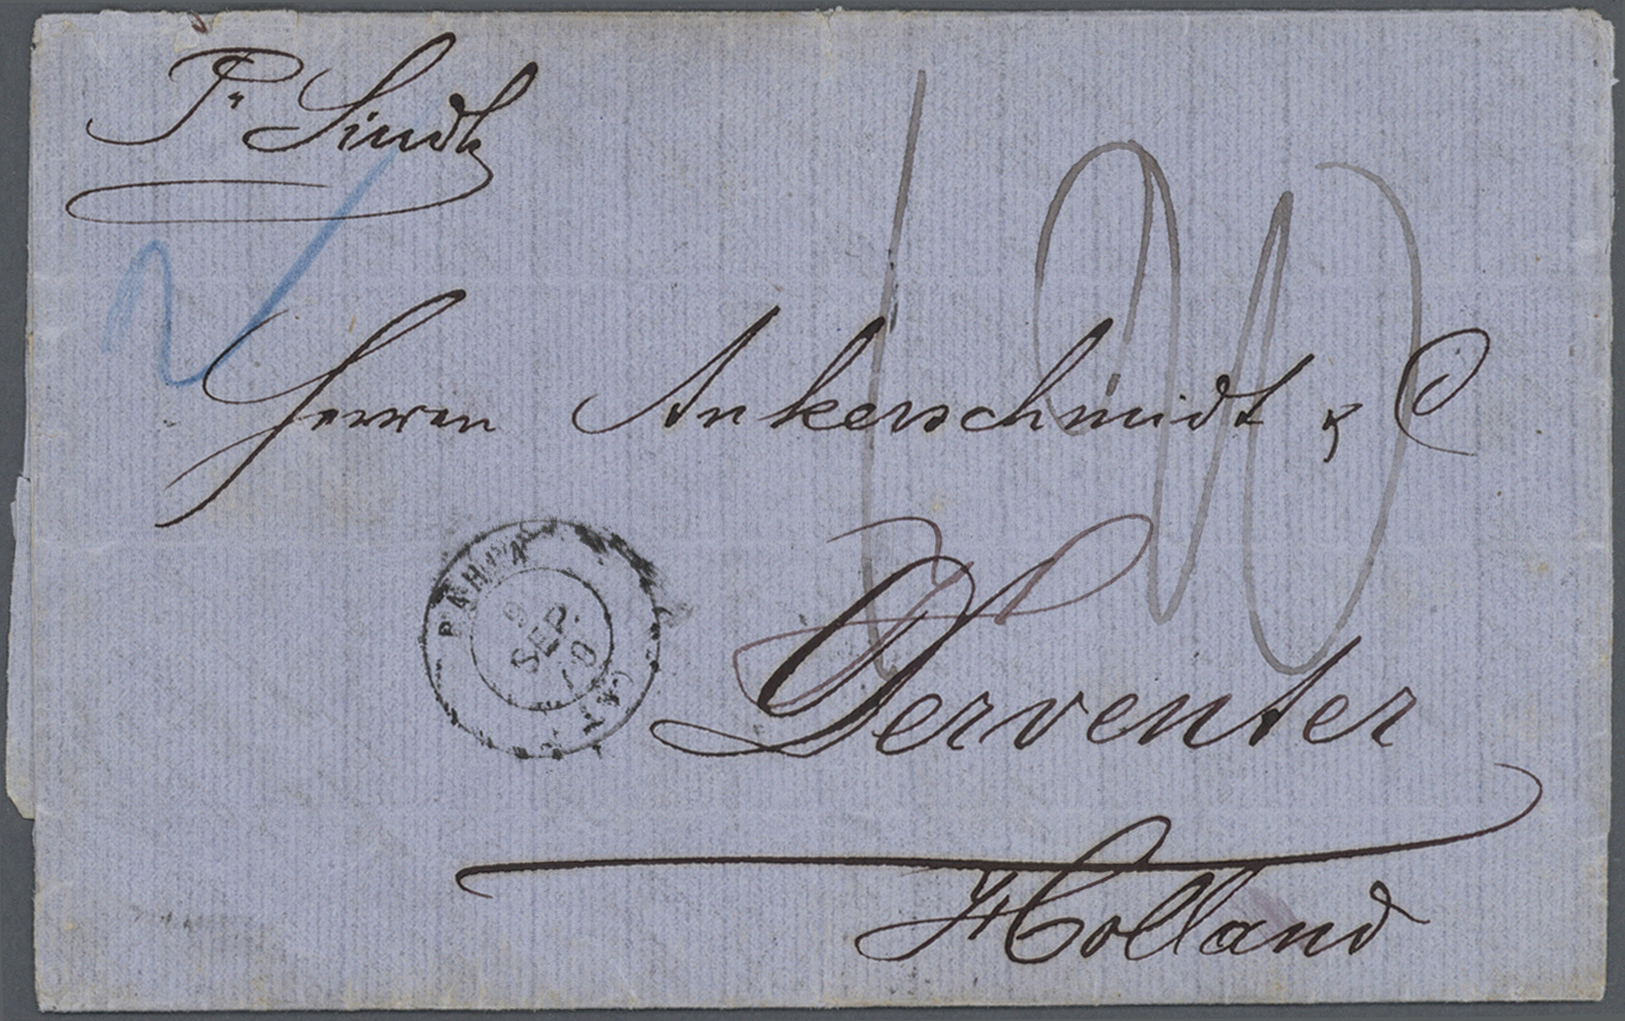 Pr Sindh
Herren Ankerschmidt & C
BAHIA
9
SEP.
70
Derventer
Holland